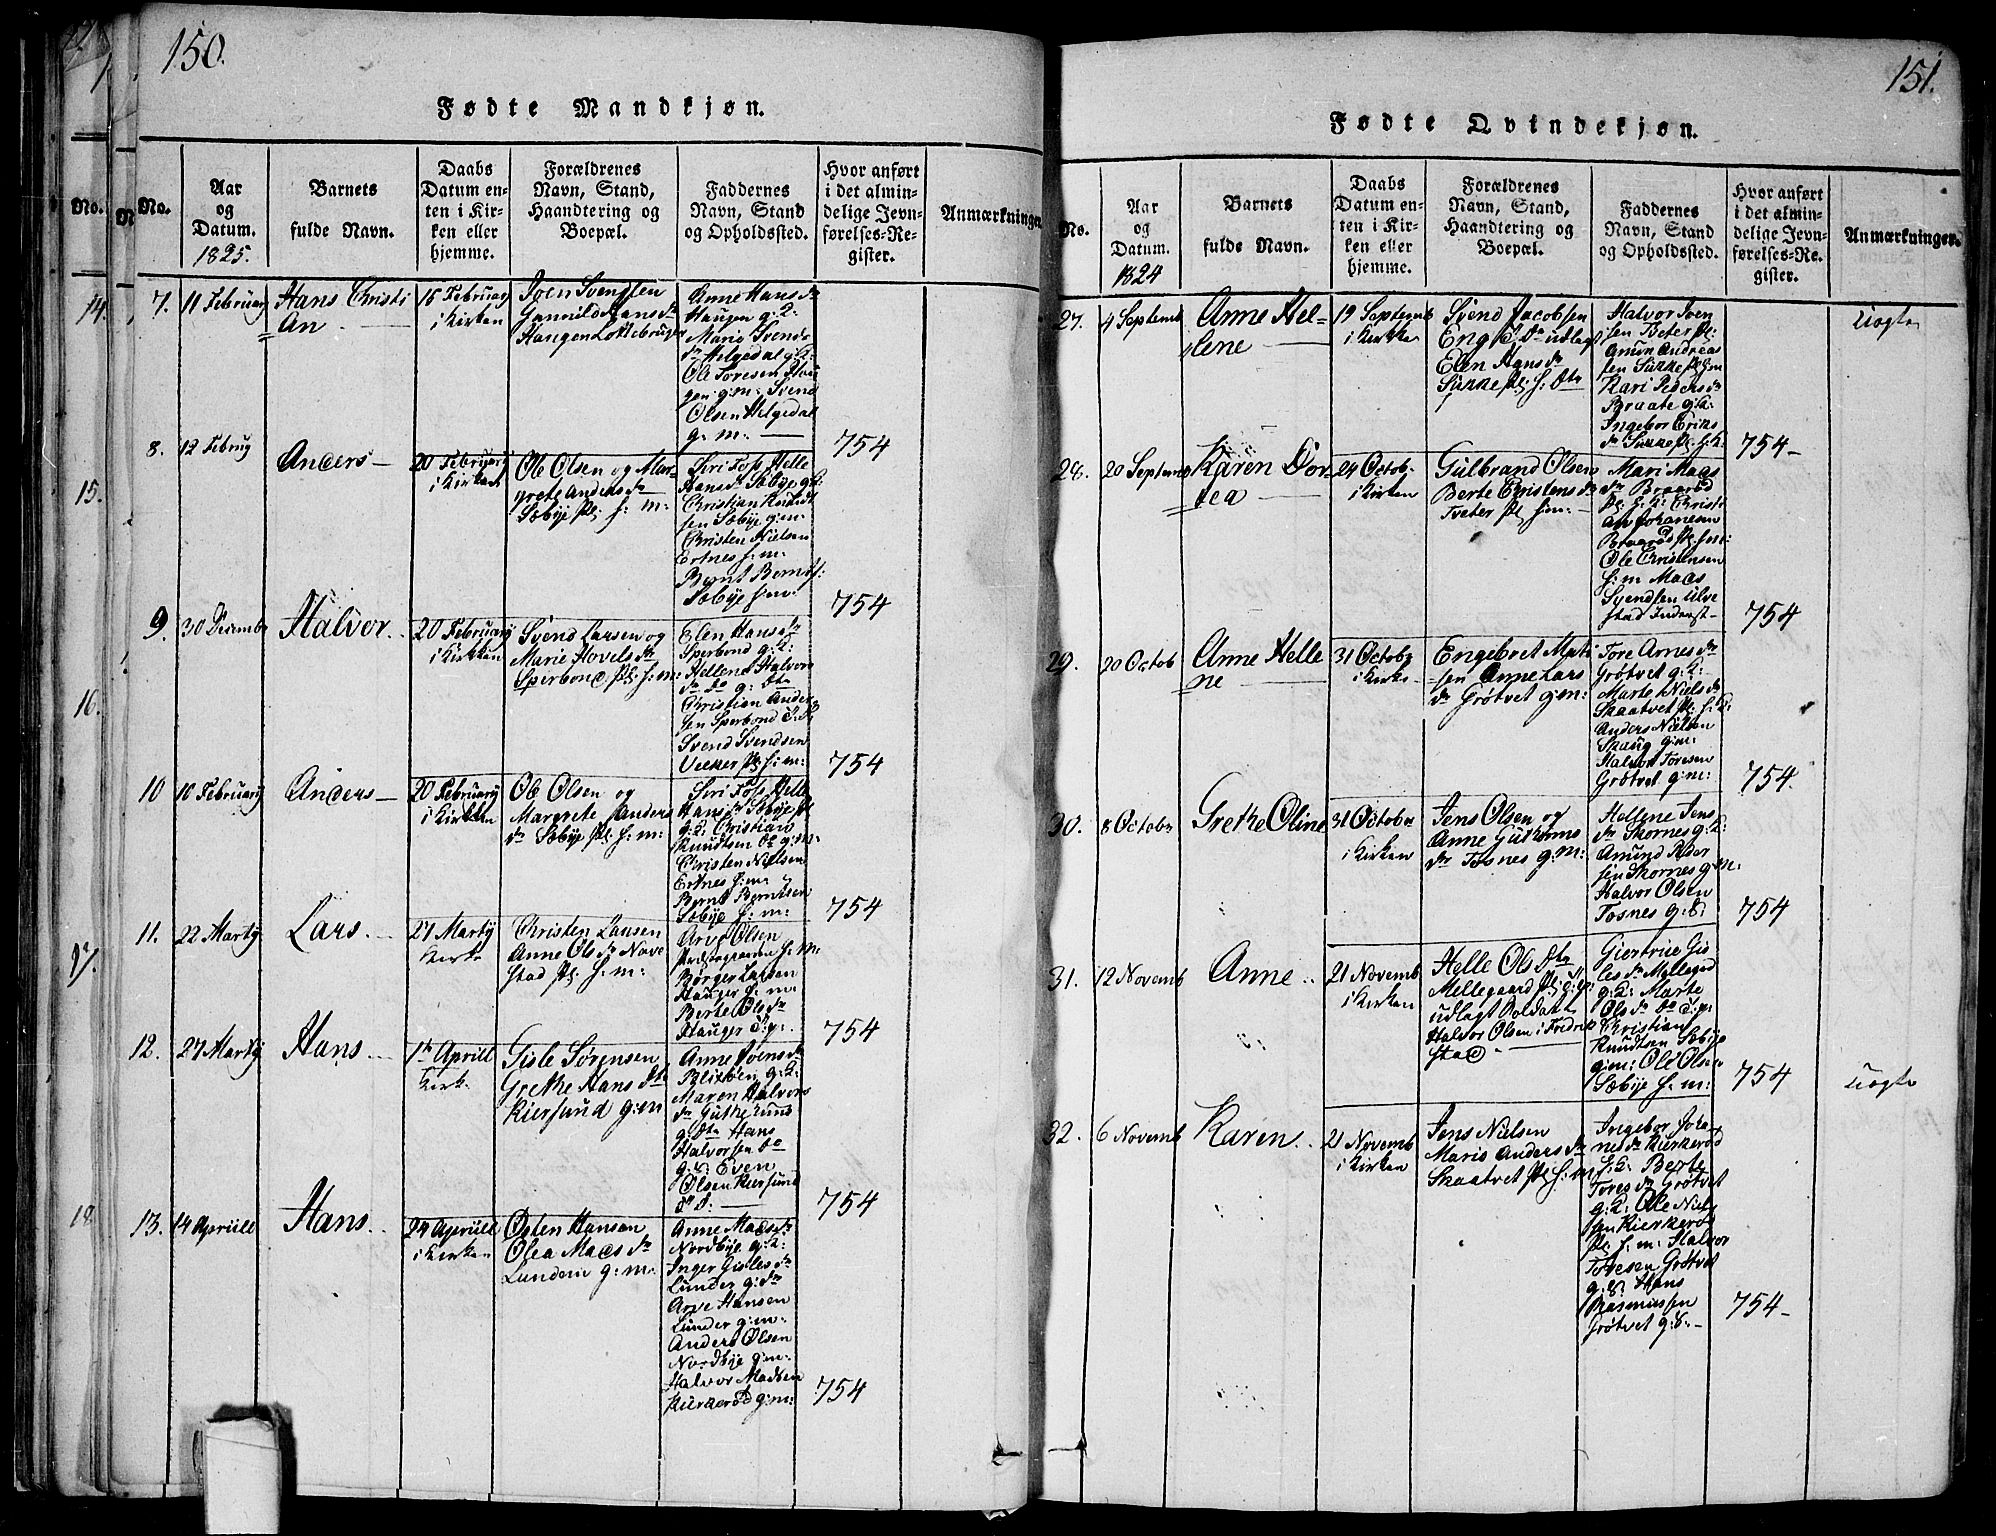 150.
Fødte Mandkjøn.
No.
Aar
og
Datum.
1825.
Barnets
fulde Navn.
Daabs
Datum en-
ten i Kir-
ken eller
hjemme.
Forældrenes
Navn, Stand,
Haandtering og
Boepæl.
Faddernes
Navn, Stand
og Opholdssted.
Hvor anført
i det almin-
delige Jevn-
førelses-Re-
gister.
Anmærkninger
7.
11 Februarij
Hans Christi
An
Februarij
i Kirken
Svendsen
Gunnild Hans dr
Haugen
Anne Hans dr
Haugen g:k:
Marie Svends
dr Helgedal g:k:
Ole Toresen Hau
gen g:m: Svend
Olsen Helgedal
g: m:
754
8.
12 Februg
Anders
20 Februarij
i Kirken
Ole Olsen og Mar-
grete Anders dr
Søbÿe pl: h: m:
Siri Helle
Hans dr Søbÿe
Christian Knudt
sen Søbÿe g:m:
Christen Nielsen
Ertnes h:m:
Bernt Berndts:
Søbÿe h:m:
754
9.
30 Decembr
Halvor
20 Februarij
i Kirken
Svend Larsen og
Marie Hovels dr
Sperbond pl: h: m:
Elen Hans dr
Sperbond g:k:
Hellene Halvors
dr do g: dtr
Christian Anders
sen Sperbond
Svend Svendsen
pl: h: m:
754
10
16 Februarij
Anders
20 Februarij
i Kirken
Ole Olsen og
Margrete Anders
dr Søbÿe pl: h: m:
Siri Helle
Hans dr Søbÿe pl
g:k: Christian
Knudtsen do g:m:
Christen Nielsen
Ertnes h:m:
Bernt Berntsen
Søbÿe h: m:
754
11.
22 Martij
Lars
27 Martij
Kirk
Christen Larsen
Anne Ols dr Nave
stad pl: h: m:
Arve Olsen
Præstegaarden h: m:
Børger Larsen
Hauger h: m:
Berte Ols dr
Hauger
754
12.
27 Martij
Hans
1te Aprill
Kirk
Gisle Sørensen
Grethe Hans dtr
Kiersund g:m
Anne Joens dr
g:k:
Maren Halvors
dr Guthe
g: dtr Hans
Halvorsen do
g:S: Even
Olsen Kiersund
754
13.
14 Aprill
Hans
24 Aprill
i Kirken
Østen Hansen
Olea Maes dr
Lunden g:m:
Anne Maes dr
Nordbÿe g:k:
Inger Gisles dr
Lunder g:dr
Arve Hansen
Lunder g:m:
Anders Olsen
Nordbÿe g:m:
Halvor Madsen
Kirkerød g:m:
754
14.
15.
16.
17.
18
151.
Fødte Qvindekjøn.
No.
Aar
og
Datum.
1824
Barnets
fulde Navn.
Daabs
Datum en-
ten i Kir-
ken eller
hjemme.
Forældrenes
Navn, Stand,
Haandtering og
Boepæl.
Faddernes
Navn, Stand
og Opholdssted.
Hvor anført
i det almin-
delige Jevn-
førelses-Re-
gister.
Anmærkninger.
27.
4 Septemb
Anne Hel-
lene
19 Septemb
i Kirken
Svend Jacobsen
Eng udlagt
Elen Hans dr
Sukke pl: h: dtr
Halvor Joen
sen Tveter pl:
Amun Andreas
sen Sukke pl: h:m
Kari Peders dr
Braate g:k:
Ingebor Eriks
dr Sukke pl: h:k:
754
Uægte
28.
20 Septemb
Karen Dor-
tea
24 Octob
i Kirken
Gulbrand Olsen
Berte Christens dr
Tveter pl: h:m:
Mari Maes
dr Braarød
pl: h: k: Christi
an Johanesen
Braarød pl: h:m:
Ole Christensen
h: m Maes
Svendsen Ulve
stad Inderst
754
29.
20 Octob
Anne Helle
ne
31 Octobr
i Kirke
Engebret Mati
sen Anne Lars
dr Grøtvet g:m:
Tore Arnes dr
Grøtvet g:k:
Marte Niels dr
Skaatvet pl: h: k:
Anders Nielsen
Skaug g:m:
Halvor Toresen
Grøtvet g:m:
754.
30.
8 Octobr
Grethe Oline
31 Octobr
i Kirken
Jens Olsen og
Anne Guthorms
dr Tosnes g:m:
Hellene Jens
dr Skornes g:k:
Amund Peder
sen Skornes g:m:
Halvor Olsen
Tosnes g:S:
754
31.
12 Novemb
Anne
21 Novemb
i Kirken
Helle Ols dtr
Mellegaard
udlagt Soldat
Halvor Olsen i Fredrik
stad
Giertrue Gis
les dr Mellegrd
g:k: Marte
Ols dr do
Christian
Knudtsen Søbÿe
g:m: Ole Olsen
Søbÿe h: m:
754
Uægte
32.
6 Novemb
Karen
21 Novemb
i Kirken
Jens Nielsen
Maris Anders dr
Skaatvet pl: h: m
Ingebor Joha-
nes dr Kierkerød
h:k: Berte
Tores dr Grøtvet
g:k: Ole Niel-
sen Kierkerød
pl: h: m: Halvor
Toresen Grøtvet
g:S: Hans
Rasmussen
Grøtvet g:S:
754